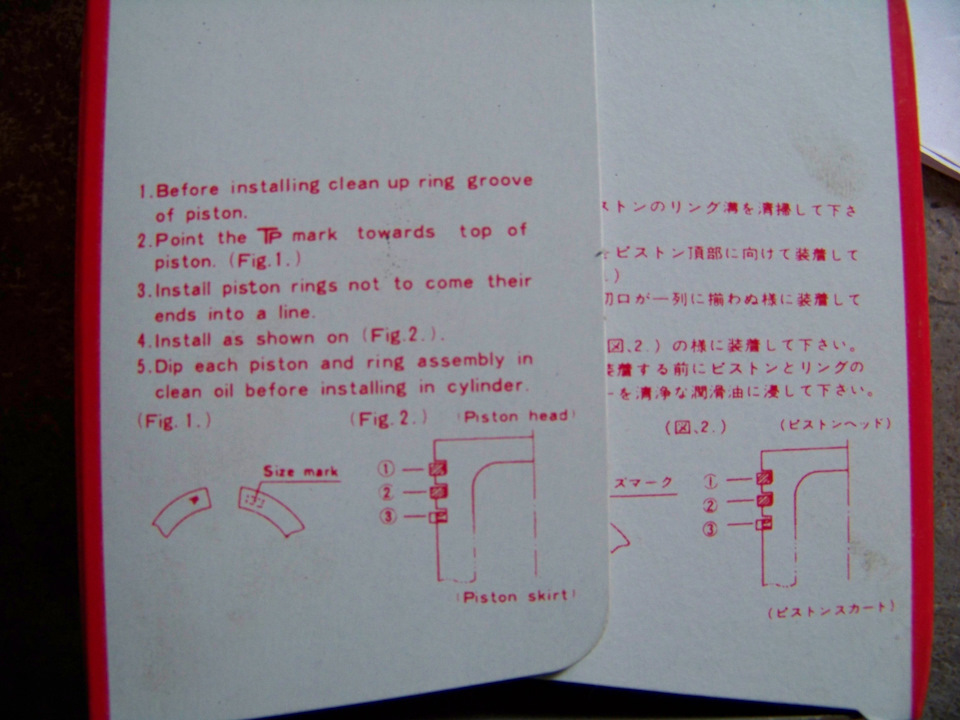 1. Before installing clean up ring groove
of piston.
2. Point the TP mark towards top of
piston. (Fig.1.)
3. Install piston rings not to come their
ends into a line.
4. Install as shown on (Fig.2.).
5. Dip each piston and ring assembly in
clean oil before installing in cylinder.
(Fig. 1.) (Fig. 2.) (Piston head)
Size mark
①
②
③
(Piston skirt)
ストンのリング溝を清掃して下さ
をピストン頂部に向けて装着して
.)
切口が一列に揃わぬ様に装着して
図.2.) の様に装着して下さい。
装着する前にピストンとリングの
ーを清浄な潤滑油に浸して下さい。
(図.2.) (ピストンヘッド)
ズマーク
①
②
③
(ピストンスカート)